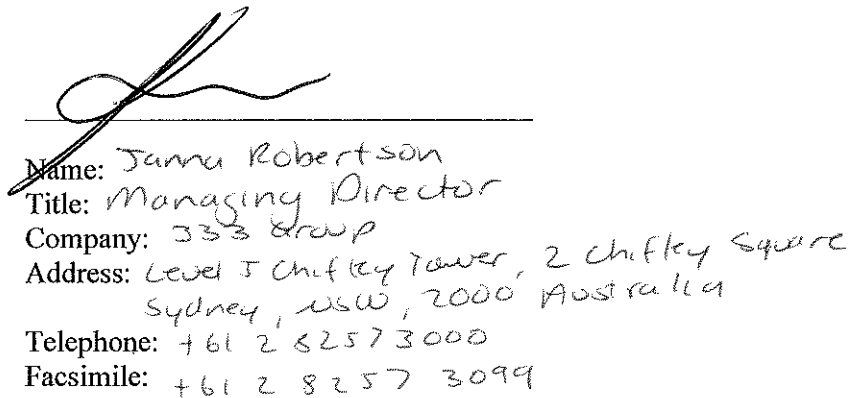 Name: Janna Robertson
Title: Managing Director
Company: 333 Group
Address: Level 5 Chifley Tower, 2 Chifley Square
Sydney, NSW, 2000 Australia
Telephone: +61 2 82573000
Facsimile: +61 2 8257 3099